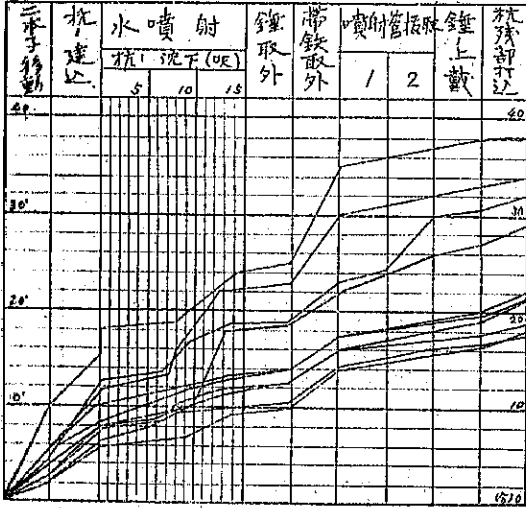 二本子移動
杭建込
水噴射
杭沈下(呎)
5 10 15
錘取外
帯鉄取外
噴射管抜取
1 2
錘上載
杭残部打込
40 40
30' 30
20' 20
10' 10